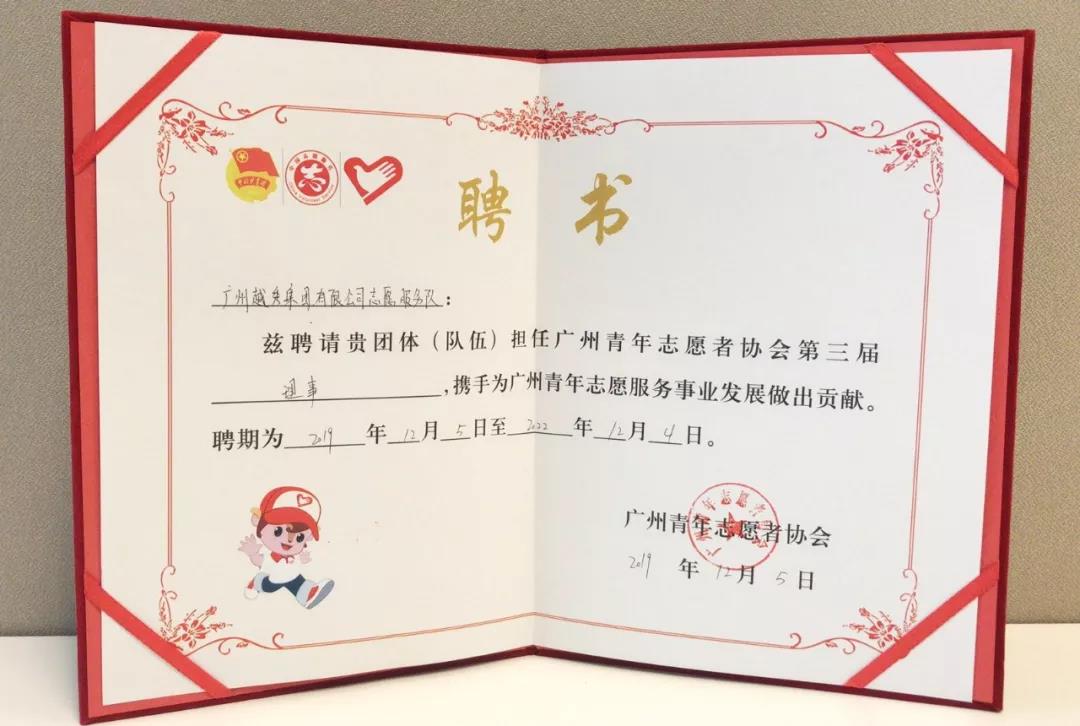 聘 书
广州越秀集团有限公司志愿服务队：
兹聘请贵团体（队伍）担任广州青年志愿者协会第三届
理事，携手为广州青年志愿服务事业发展做出贡献。
聘期为2019年12月5日至2022年12月4日。
广州青年志愿者协会
2019年12月5日